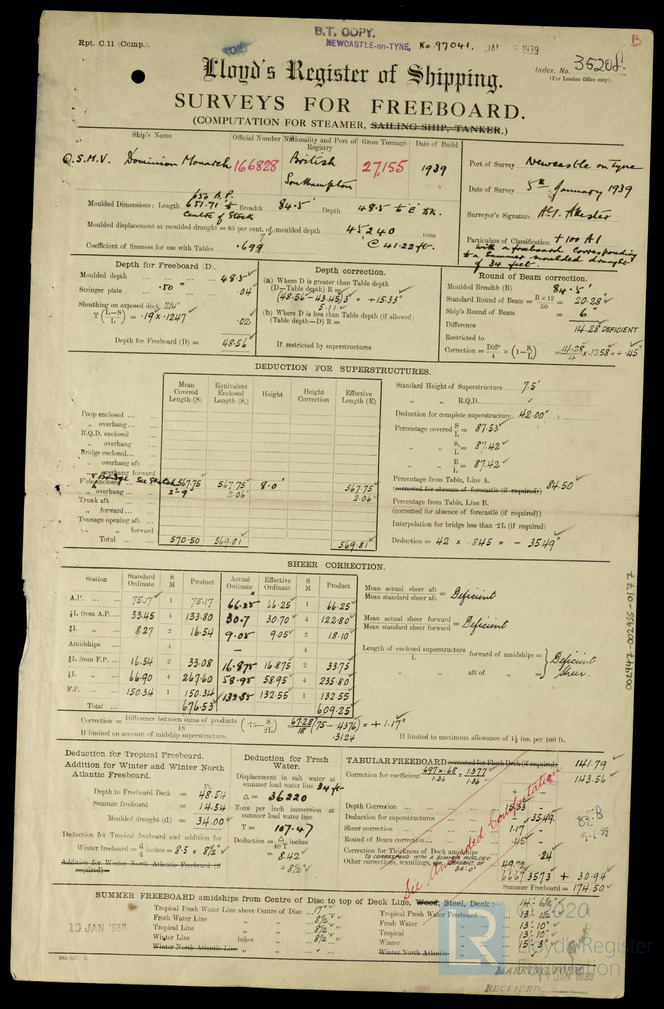 B.T. COPY.
Rpt. C.11 (Comp.).
NEWCASTLE-ON-TYNE. No. 97041. JAN 1939
Index. No. 35208.
(For London Office only).
Lloyd's Register of Shipping.
SURVEYS FOR FREEBOARD.
(COMPUTATION FOR STEAMER, SAILING SHIP, TANKER.)
Ship's Name Official Number Nationality and Port of Registry Gross Tonnage Date of Build
Q.S.M.V. Dominion Monarch 166828 British Southampton 27,155 1939
Port of Survey Newcastle on Tyne
Date of Survey 5th January 1939
Surveyor's Signature
Particulars of Classification +100 A1
with a freeboard corresponding
to a summer moulded draught
of 34 feet.
650 B.P.
Moulded Dimensions: Length 651.71 to Breadth 84.5' Depth 48.5 to E Dk.
Centre of Stock
Moulded displacement at moulded draught = 85 per cent. of moulded depth 45240 tons
@ 41.22 ft.
Coefficient of fineness for use with Tables .699
Depth for Freeboard (D).
Moulded depth ... 48.5
Stringer plate ... .50" .04
Sheathing on exposed deck 2¼"
T (L-S/L) = .19 x .1247 .02
Depth for Freeboard (D) = 48.56
Depth correction.
(a) Where D is greater than Table depth
(D-Table depth) R =
(48.56-43.45)3 = +15.33"
5.11
(b) Where D is less than Table depth (if allowed)
(Table depth-D) R =
If restricted by superstructures
Round of Beam correction.
Moulded Breadth (B) 84.5'
Standard Round of Beam = B x 12/50 = 20.28"
Ship's Round of Beam = 6"
Difference 14.28 DEFICIENT
Restricted to
Correction = Diff/4 x (1-S/L) = 14.28/4 x .1258 = + .45"
DEDUCTION FOR SUPERSTRUCTURES.
Mean Covered Length (S) Equivalent Enclosed Length (S1) Height Height Correction Effective Length (E)
Poop enclosed ...
" overhang ...
R.Q.D. enclosed
" overhang
Bridge enclosed...
" overhang aft
" overhang forward
F'cle enclosed & Bridge See Sketch 567.75 567.75 8.0' 567.75
" overhang ... 2'-9" 2.06 2.06
Trunk aft ...
" forward ...
Tonnage opening aft ...
" " forward
Total ... 570.50 569.81 569.81
Standard Height of Superstructure 7.5'
" " R.Q.D.
Deduction for complete superstructure 42.00"
Percentage covered S/L = 87.53
" " S1/L = 87.42
" " E/L = 87.42
Percentage from Table, Line A. 84.50
(corrected for absence of forecastle (if required))
Percentage from Table, Line B.
(corrected for absence of forecastle (if required))
Interpolation for bridge less than .2L (if required)
Deduction = 42 x .845 = - 35.49"
SHEER CORRECTION.
Station Standard Ordinate S M Product Actual Ordinate Effective Ordinate S M Product
A.P. ... 75.17 1 75.17 66.25 66.25 1 66.25
⅙L from A.P. ... 33.45 4 133.80 30.7 30.70 4 122.80
⅓L " ... 8.27 2 16.54 9.05 9.05 2 18.10
Amidships ... 4 — 4
⅓L from F.P. ... 16.54 2 33.08 16.875 16.875 2 33.75
⅙L " ... 66.90 4 267.60 58.95 58.95 4 235.80
F.P. ... 150.34 1 150.34 132.55 132.55 1 132.55
Total ... 676.53 609.25
Mean actual sheer aft / Mean standard sheer aft = Deficient
Mean actual sheer forward / Mean standard sheer forward = Deficient
Length of enclosed superstructure forward of amidships = Deficient
L
" aft of " = Sheer.
Correction = Difference between sums of products/18 (.75-S/2L) = 67.28/18 (.75-.4376) = + 1.17"
.3124
If limited on account of midship superstructure. If limited to maximum allowance of 1½ ins. per 100 ft.
Deduction for Tropical Freeboard.
Addition for Winter and Winter North
Atlantic Freeboard.
Depth to Freeboard Deck = 48.54
Summer freeboard = 14.54
Moulded draught (d) = 34.00
Deduction for Tropical freeboard and addition for
Winter freeboard = d/4 inches = 8.5 = 8½"
Addition for Winter North Atlantic Freeboard (if
required) =
Deduction for Fresh
Water.
Displacement in salt water at
summer load water line 34 ft
Δ = 36220
Tons per inch immersion at
summer load water line
T = 107.47
Deduction = Δ/40T inches
= 8.42
= 8½"
TABULAR FREEBOARD corrected for Flush Deck (if required) 141.79
Correction for coefficient .697+.68/1.36 = 1.377/1.36 143.56
+ -
Depth Correction ... 15.33 -
Deduction for superstructures ... - 35.49
Sheer correction ... 1.17 -
Round of Beam correction ... .45 -
Correction for Thickness of Deck amidships - .24
TO CORRESPOND WITH A SUMMER MOULDED
Other corrections, scantlings, etc. DRAUGHT OF 34'-0" 49.72
66.67 35.73 + 30.94
Summer Freeboard = 174.50
See Amended Computation
SUMMER FREEBOARD amidships from Centre of Disc to top of Deck Line, Wood, Steel, Deck: 14'-6½"
Tropical Fresh Water Line above Centre of Disc ... 17" Tropical Fresh Water Freeboard ... 13'-1½"
Fresh Water Line " " 8½" Fresh Water " 13'-10"
Tropical Line " " 8½" Tropical " 13'-10"
Winter Line below " " 8½" Winter " 15'-3"
Winter North Atlantic Line " " Winter North Atlantic "
10 JAN 1939
MARKING FORM
RECEIVED 17 JAN 1939
002947-002955-0177
LR
©2020
Lloyd's Register
Foundation